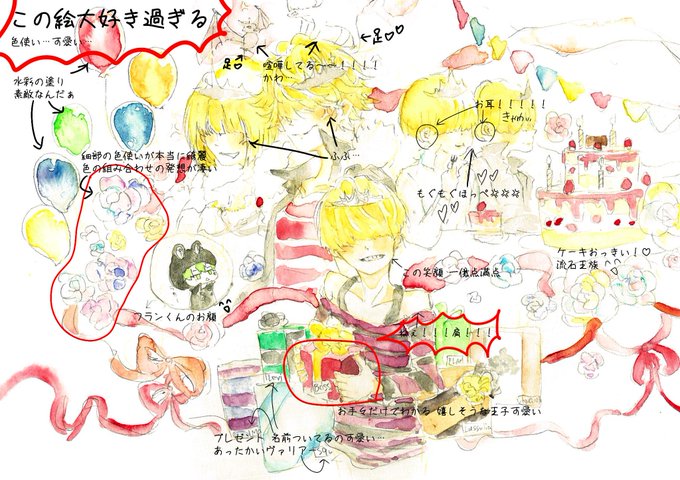 この絵大好き過ぎる
色使い…ず愛い…
水彩の塗り
素敵なんだぁ
細部の色使いが本当に綺麗
色の組み合わせの発想が凄い
足♡
←足♡♡
喧嘩してる〜〜!!!!
かわ
ふふ…
お耳!!!!!
きゃわい
もぐもぐほっぺ☆☆☆
♡♡
ケーキおっきい!♡
流石王族^^
この笑顔 一億点満点
フランくんのお顔
ねぇ!!!肩!!!
Levi
Belge
お手々だけでわかる 嬉しそうな王子ず愛い
Lussuria
プレゼント 名前ついてるのず愛い…
あったかいヴァリアー
Squ